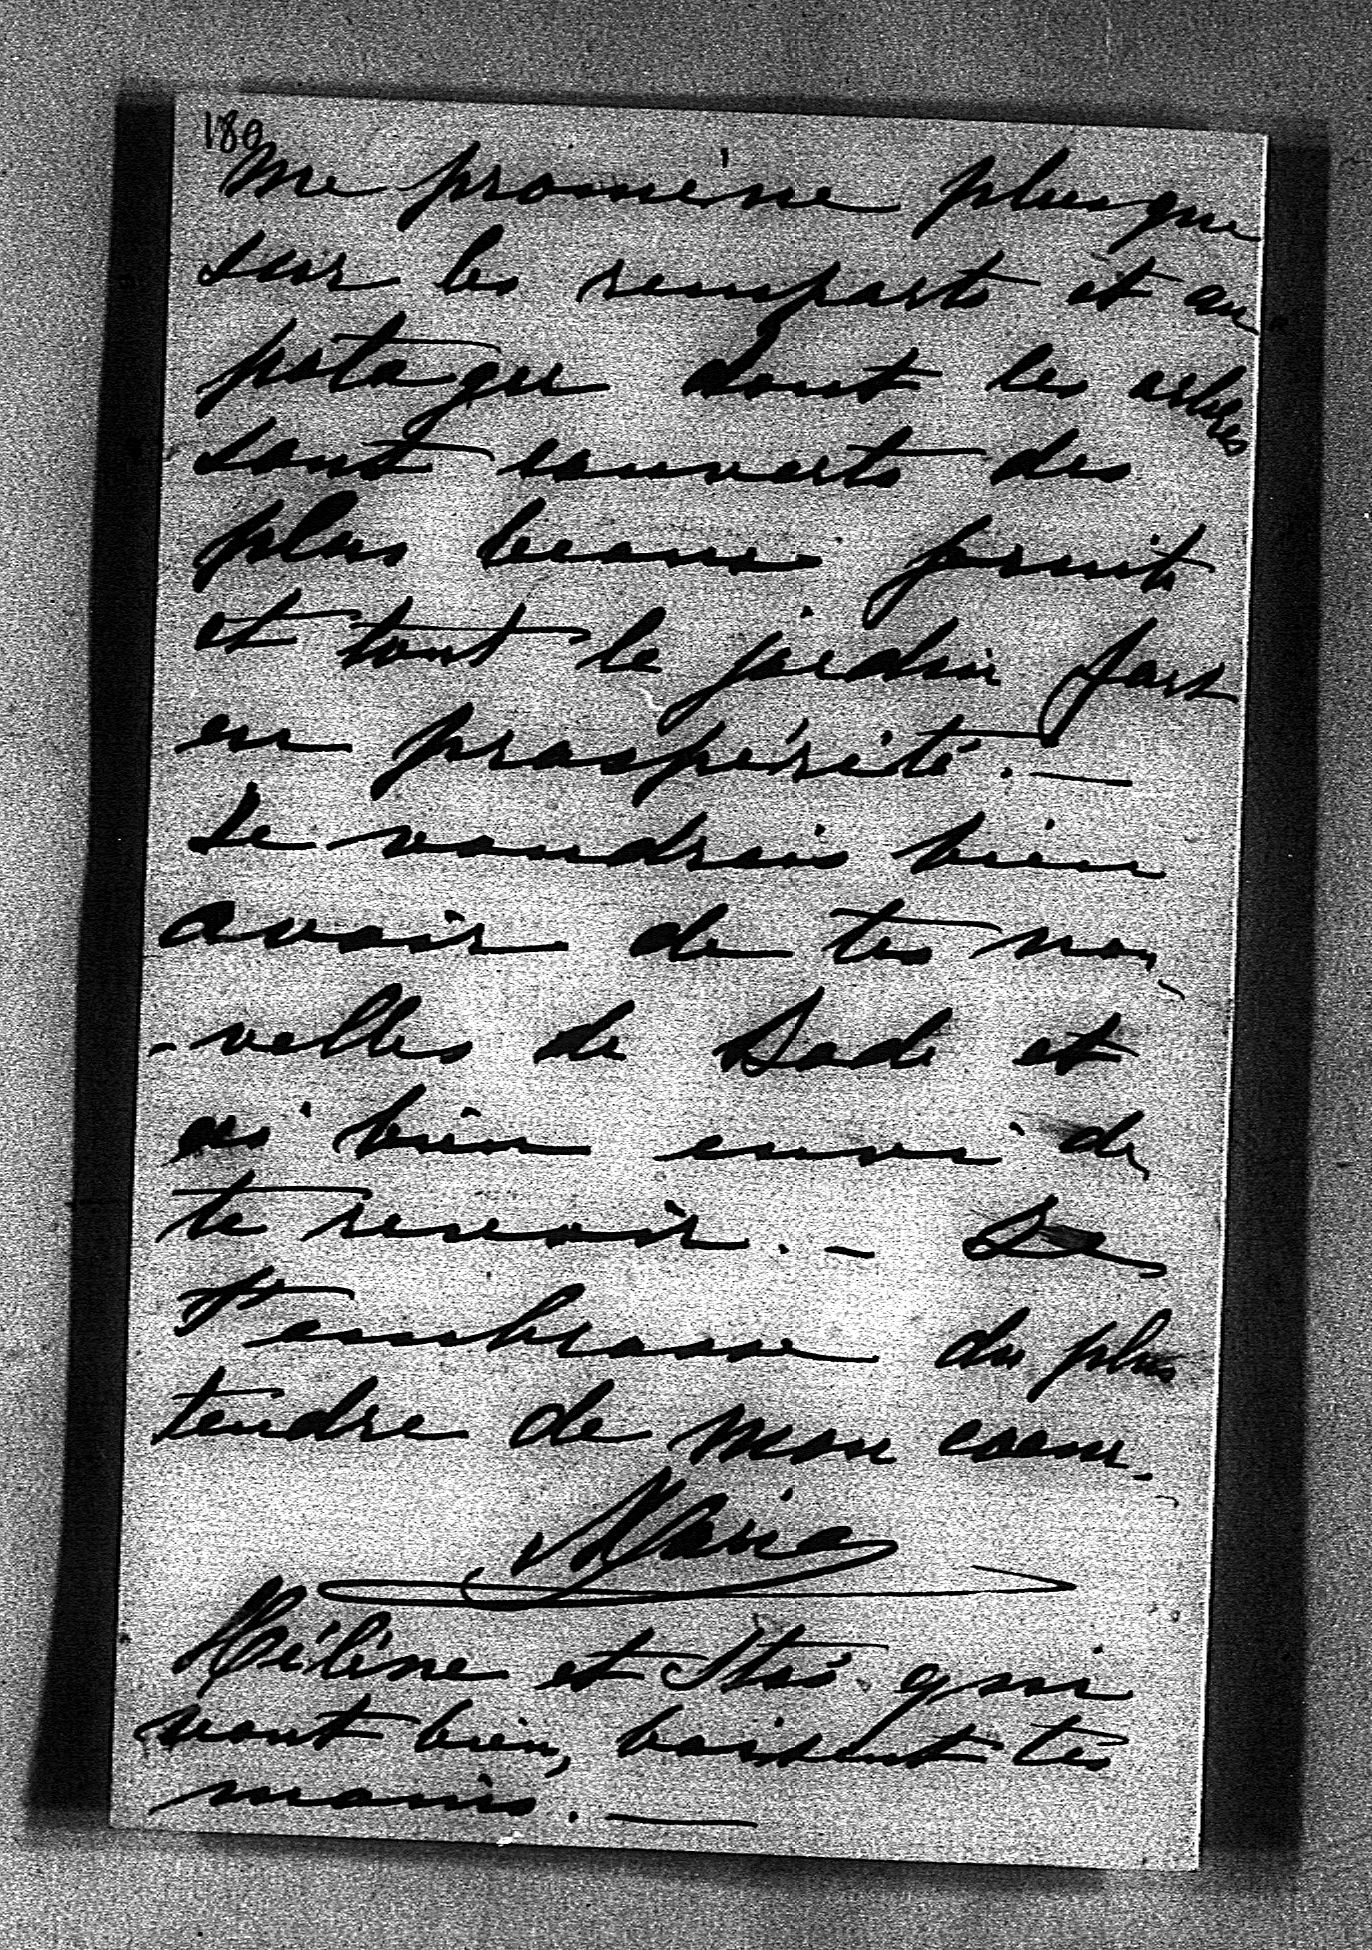 180
me promène plus que
sur les remparts et au
potager dont les arbres
sont couverts des
plus beaux fruits
et tout le jardin fort
en prospérité. —
Je voudrais bien
avoir de tes nou
-velles de et
ai bien envi de
te revoir. — Je
t'embrasse du plus
tendre de mon coeur.
Marie
Hélène et qui
vont bien, baisent tes
mains. —